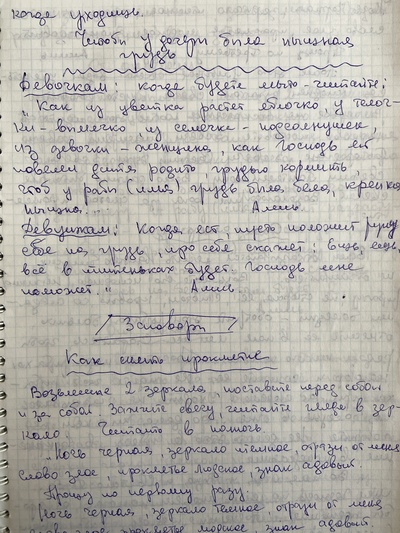 когда уходишь.
Чтобы у дочери была пышная
грудь
Девочкам: когда будете мыть - читайте:
"Как из цветка растет яблочко, у телоч-
ки - вымечко, из семечка - подсолнушек,
из девочки - женщина, как Господь ей
повелел дитя родить, грудью кормить,
чтоб у рабы (имя) грудь была бела, крепка,
пышна... Аминь.
Девушкам: Когда ест, пусть положит руку
свою на грудь, про себя скажет:
всё в титеньках будет. Господь мне
поможет." Аминь
Заговоры
Как снять проклятие
Возьмите 2 зеркала, поставьте перед собой
и за собой. Зажгите свечу, читайте глядя в зер-
кало. Читать в полночь
"Ночь черная, зеркало темное, отрази от меня
слово злое, проклятье людское, знак адовый.
Прошу по первому разу.
Ночь черная, зеркало темное, отрази от меня
слово злое, проклятье людское, знак адовый